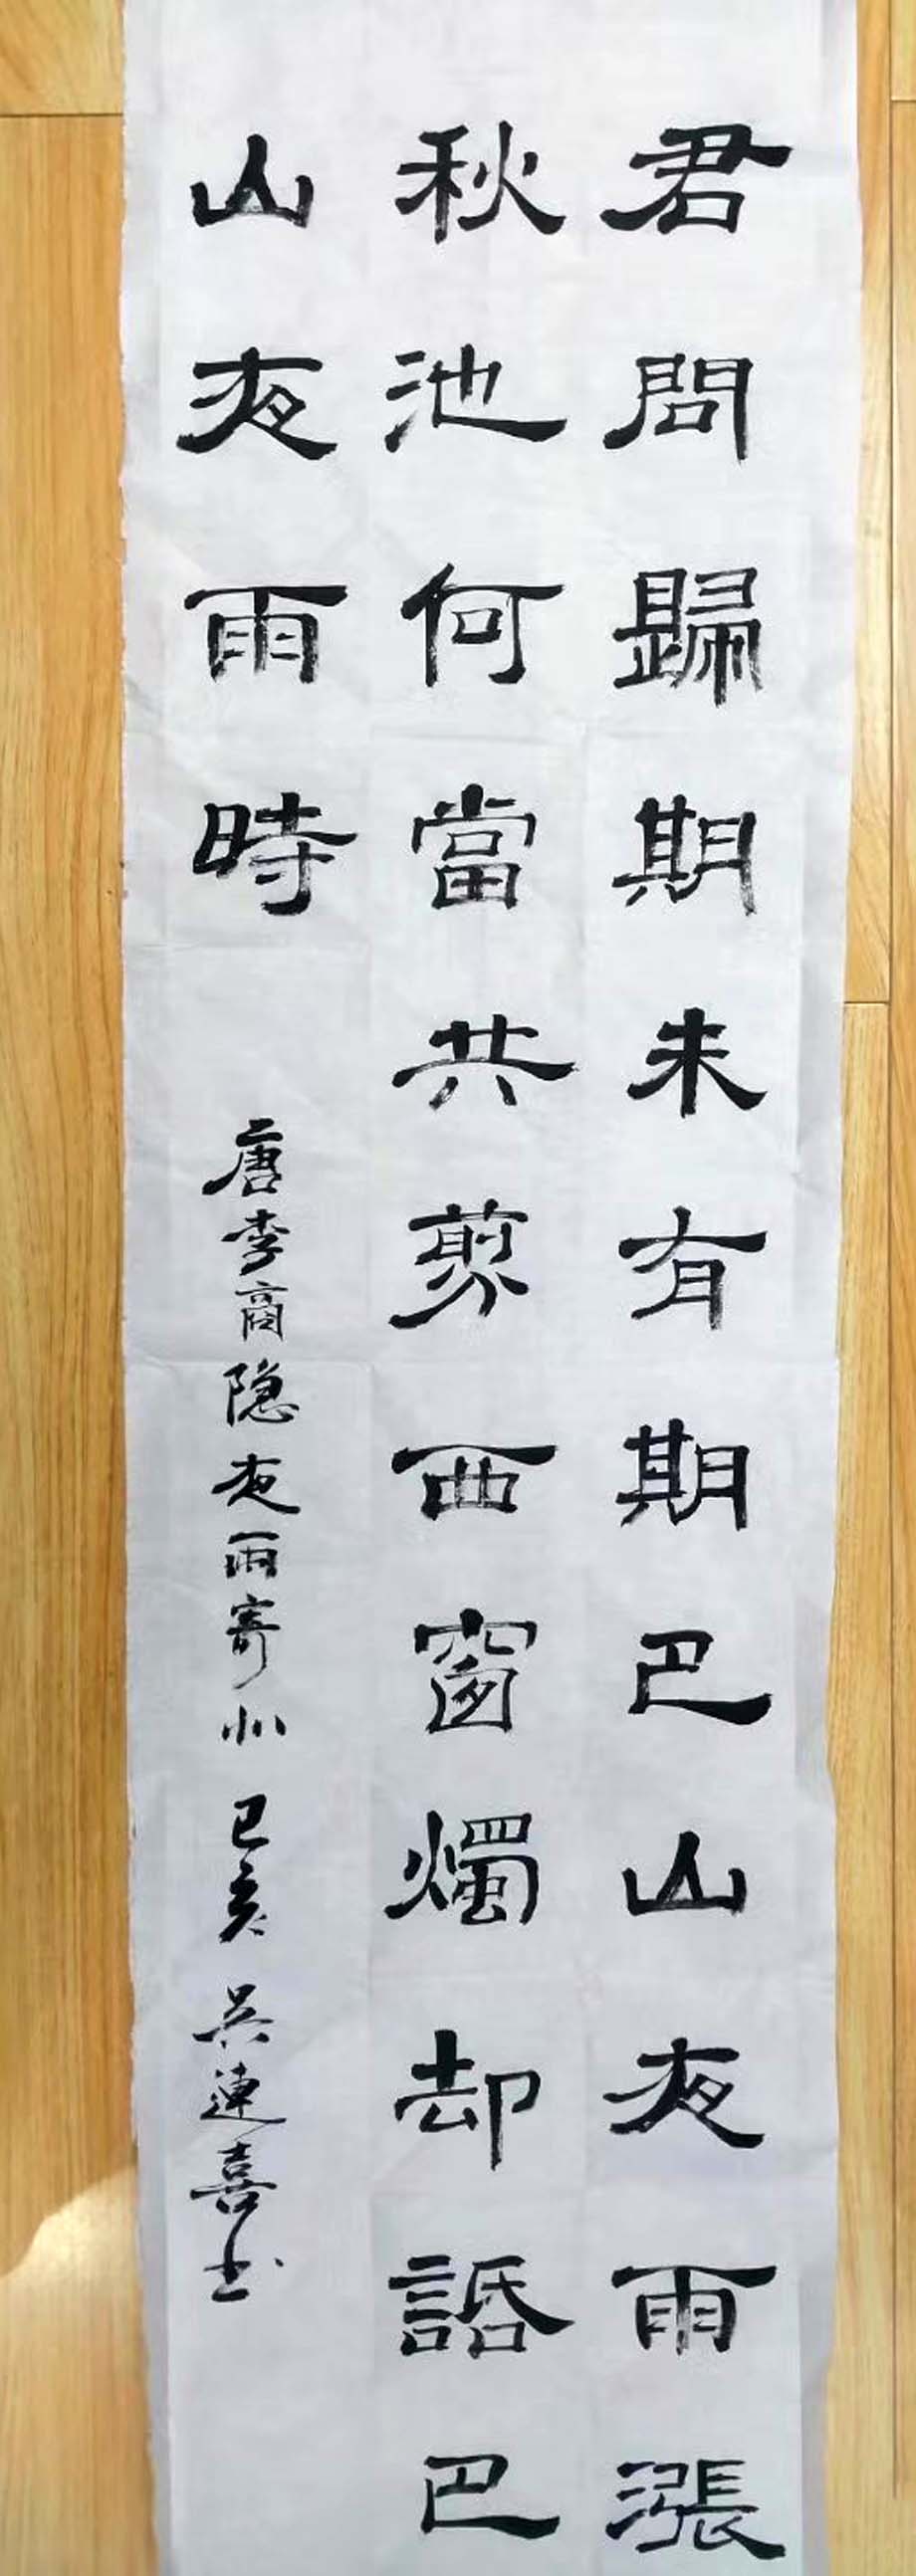 君問歸期未有期巴山夜雨漲
秋池何當共翦西窗燭却話巴
山夜雨時
唐李商隐夜雨寄北 己亥 吳連喜书